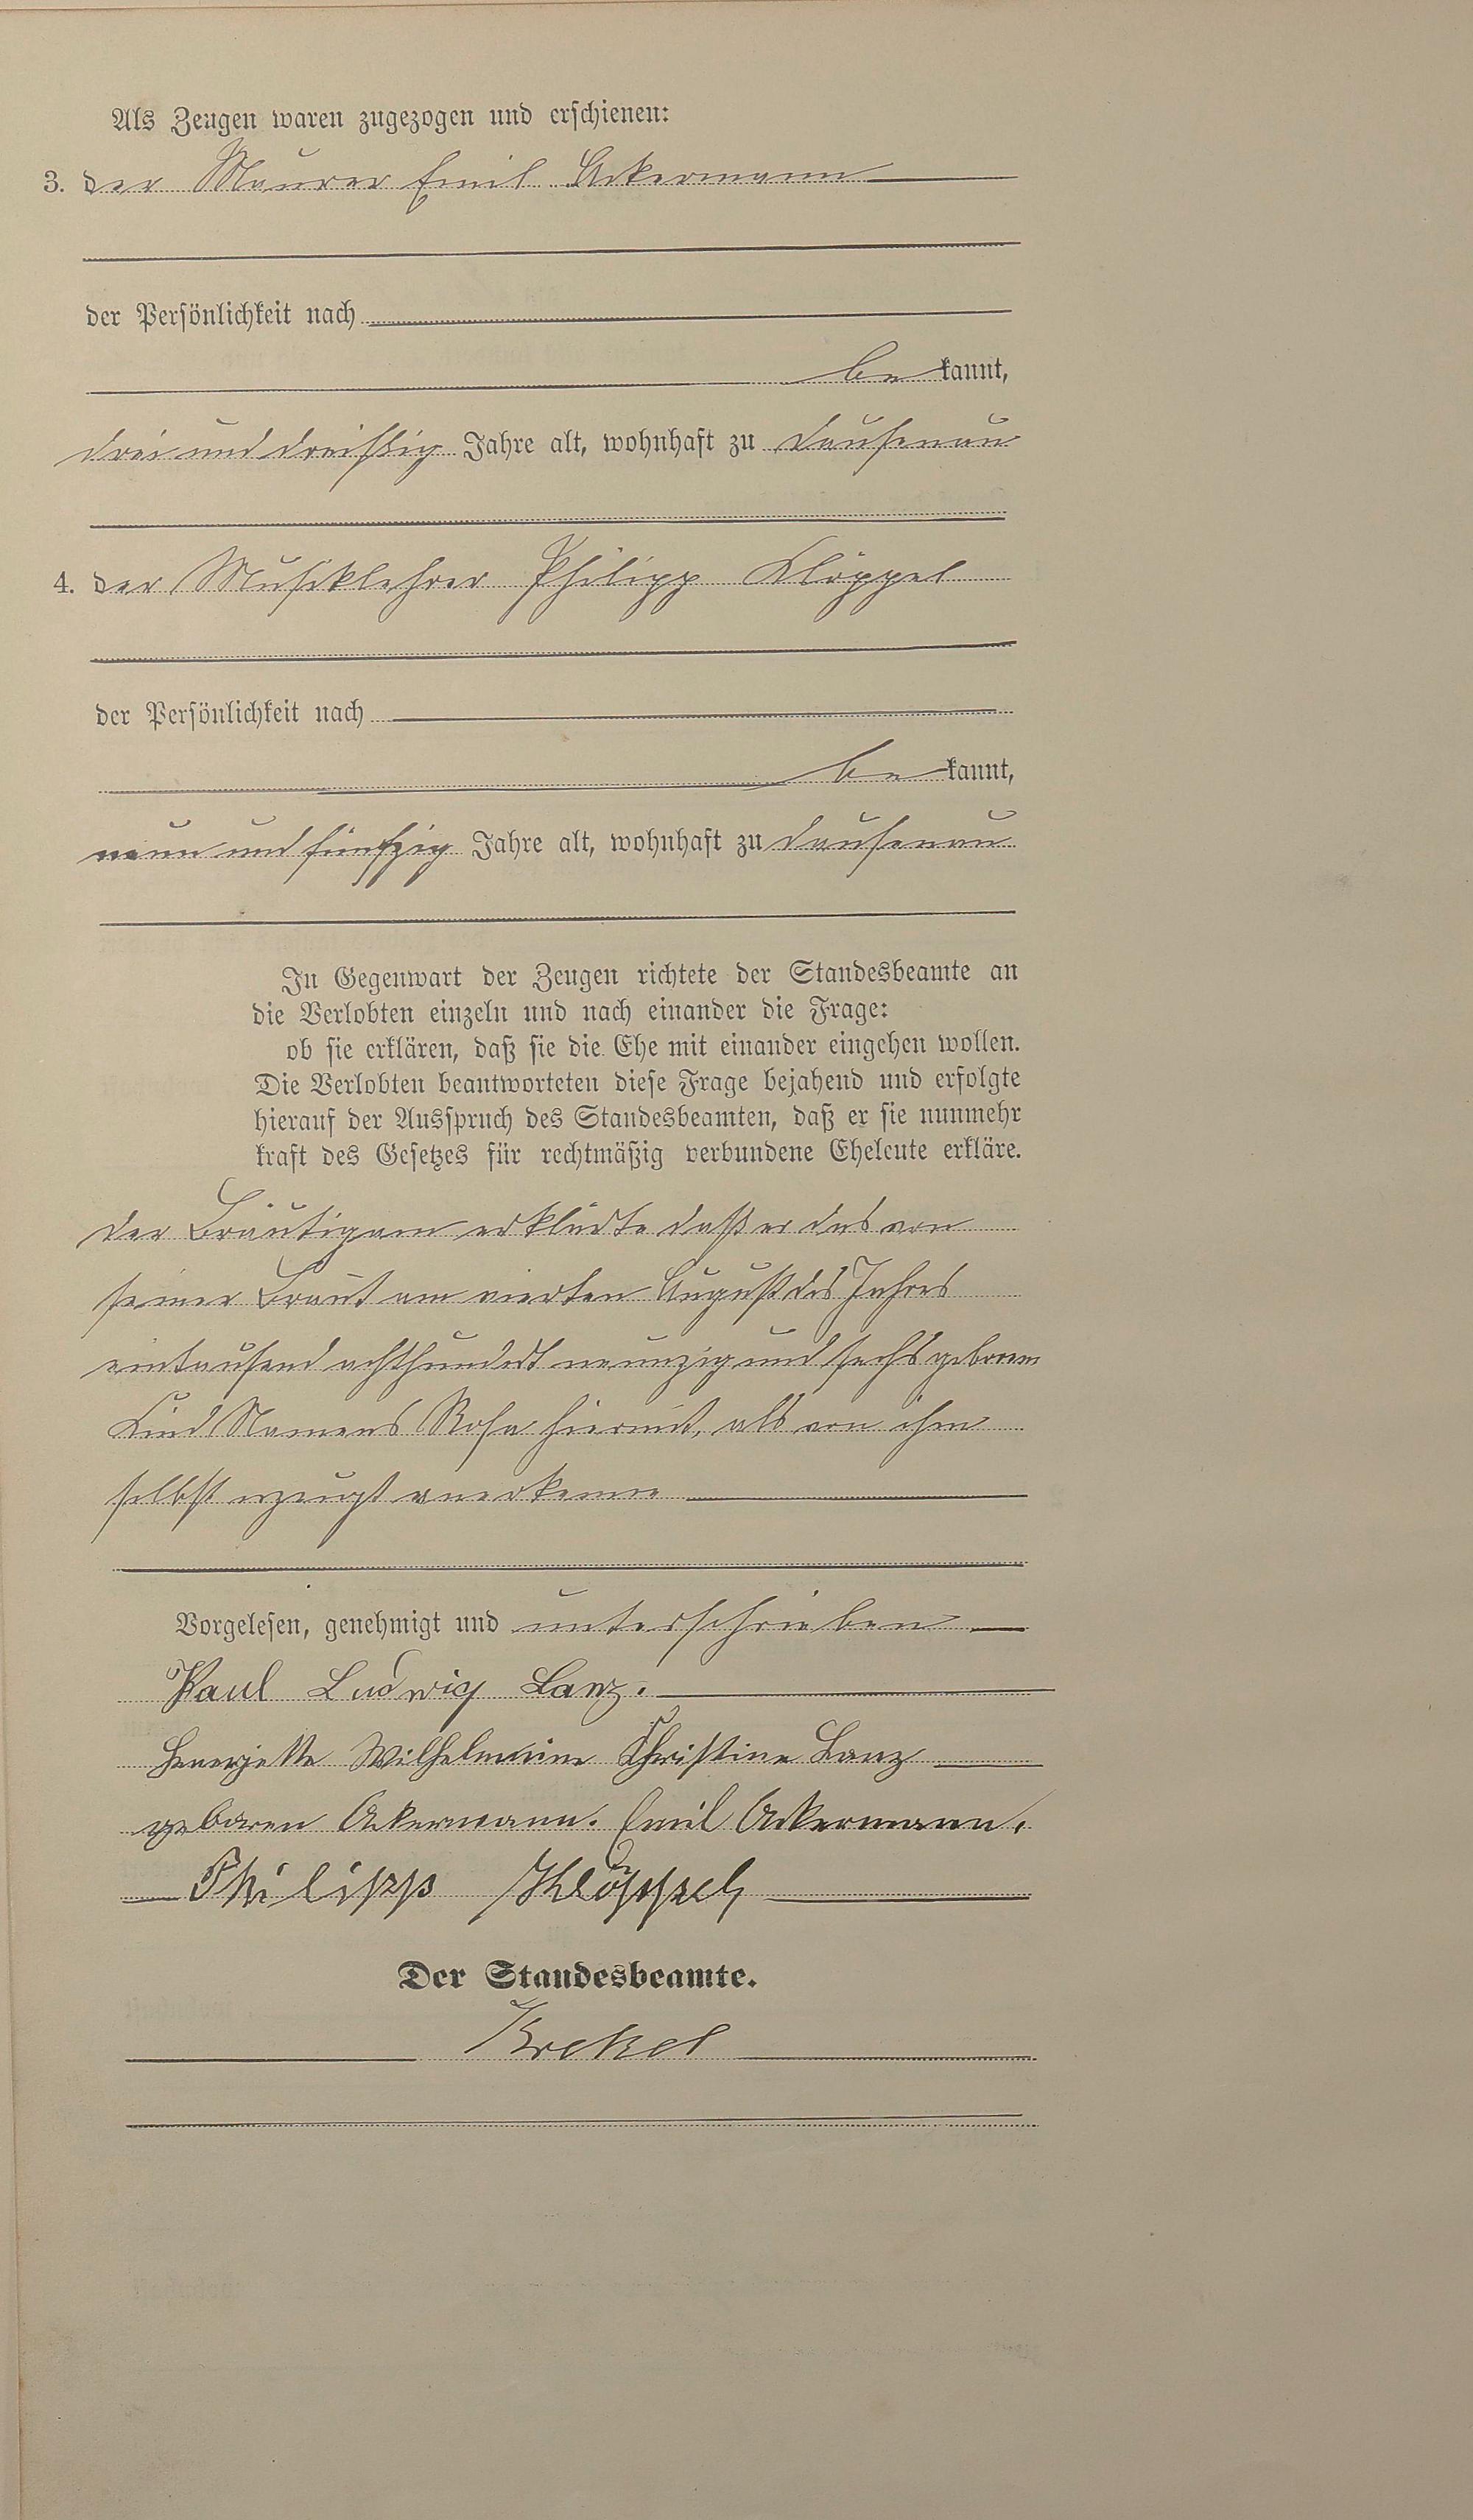 Als Zeugen waren zugezogen und erschienen:
3. der Maurer Emil Ackermann
der Persönlichkeit nach
bekannt,
drei und dreißig Jahre alt, wohnhaft zu Dausenau
4. der Musiklehrer Philipp Klöppel
der Persönlichkeit nach
bekannt,
neun und fünfzig Jahre alt, wohnhaft zu Dausenau
In Gegenwart der Zeugen richtete der Standesbeamte an
die Verlobten einzeln und nach einander die Frage:
ob sie erklären, daß sie die Ehe mit einander eingehen wollen.
Die Verlobten beantworteten diese Frage bejahend und erfolgte
hierauf der Ausspruch des Standesbeamten, daß er sie nunmehr
kraft des Gesetzes für rechtmäßig verbundene Eheleute erkläre.
Der Bräutigam erklärte daß er das von
seiner Braut am vierten August des Jahres
eintausend achthundert neunzig und sechs geboren
Kind Namens Rosa hiermit, als von ihm
selbst erzeugt anerkenne
Vorgelesen, genehmigt und unterschrieben
Paul Ludwig Lanz.
Henerjette Wilhelmine Christine Lanz
geboren Ackermann. Emil Ackermann.
Philipp Klöppel
Der Standesbeamte.
Krekel